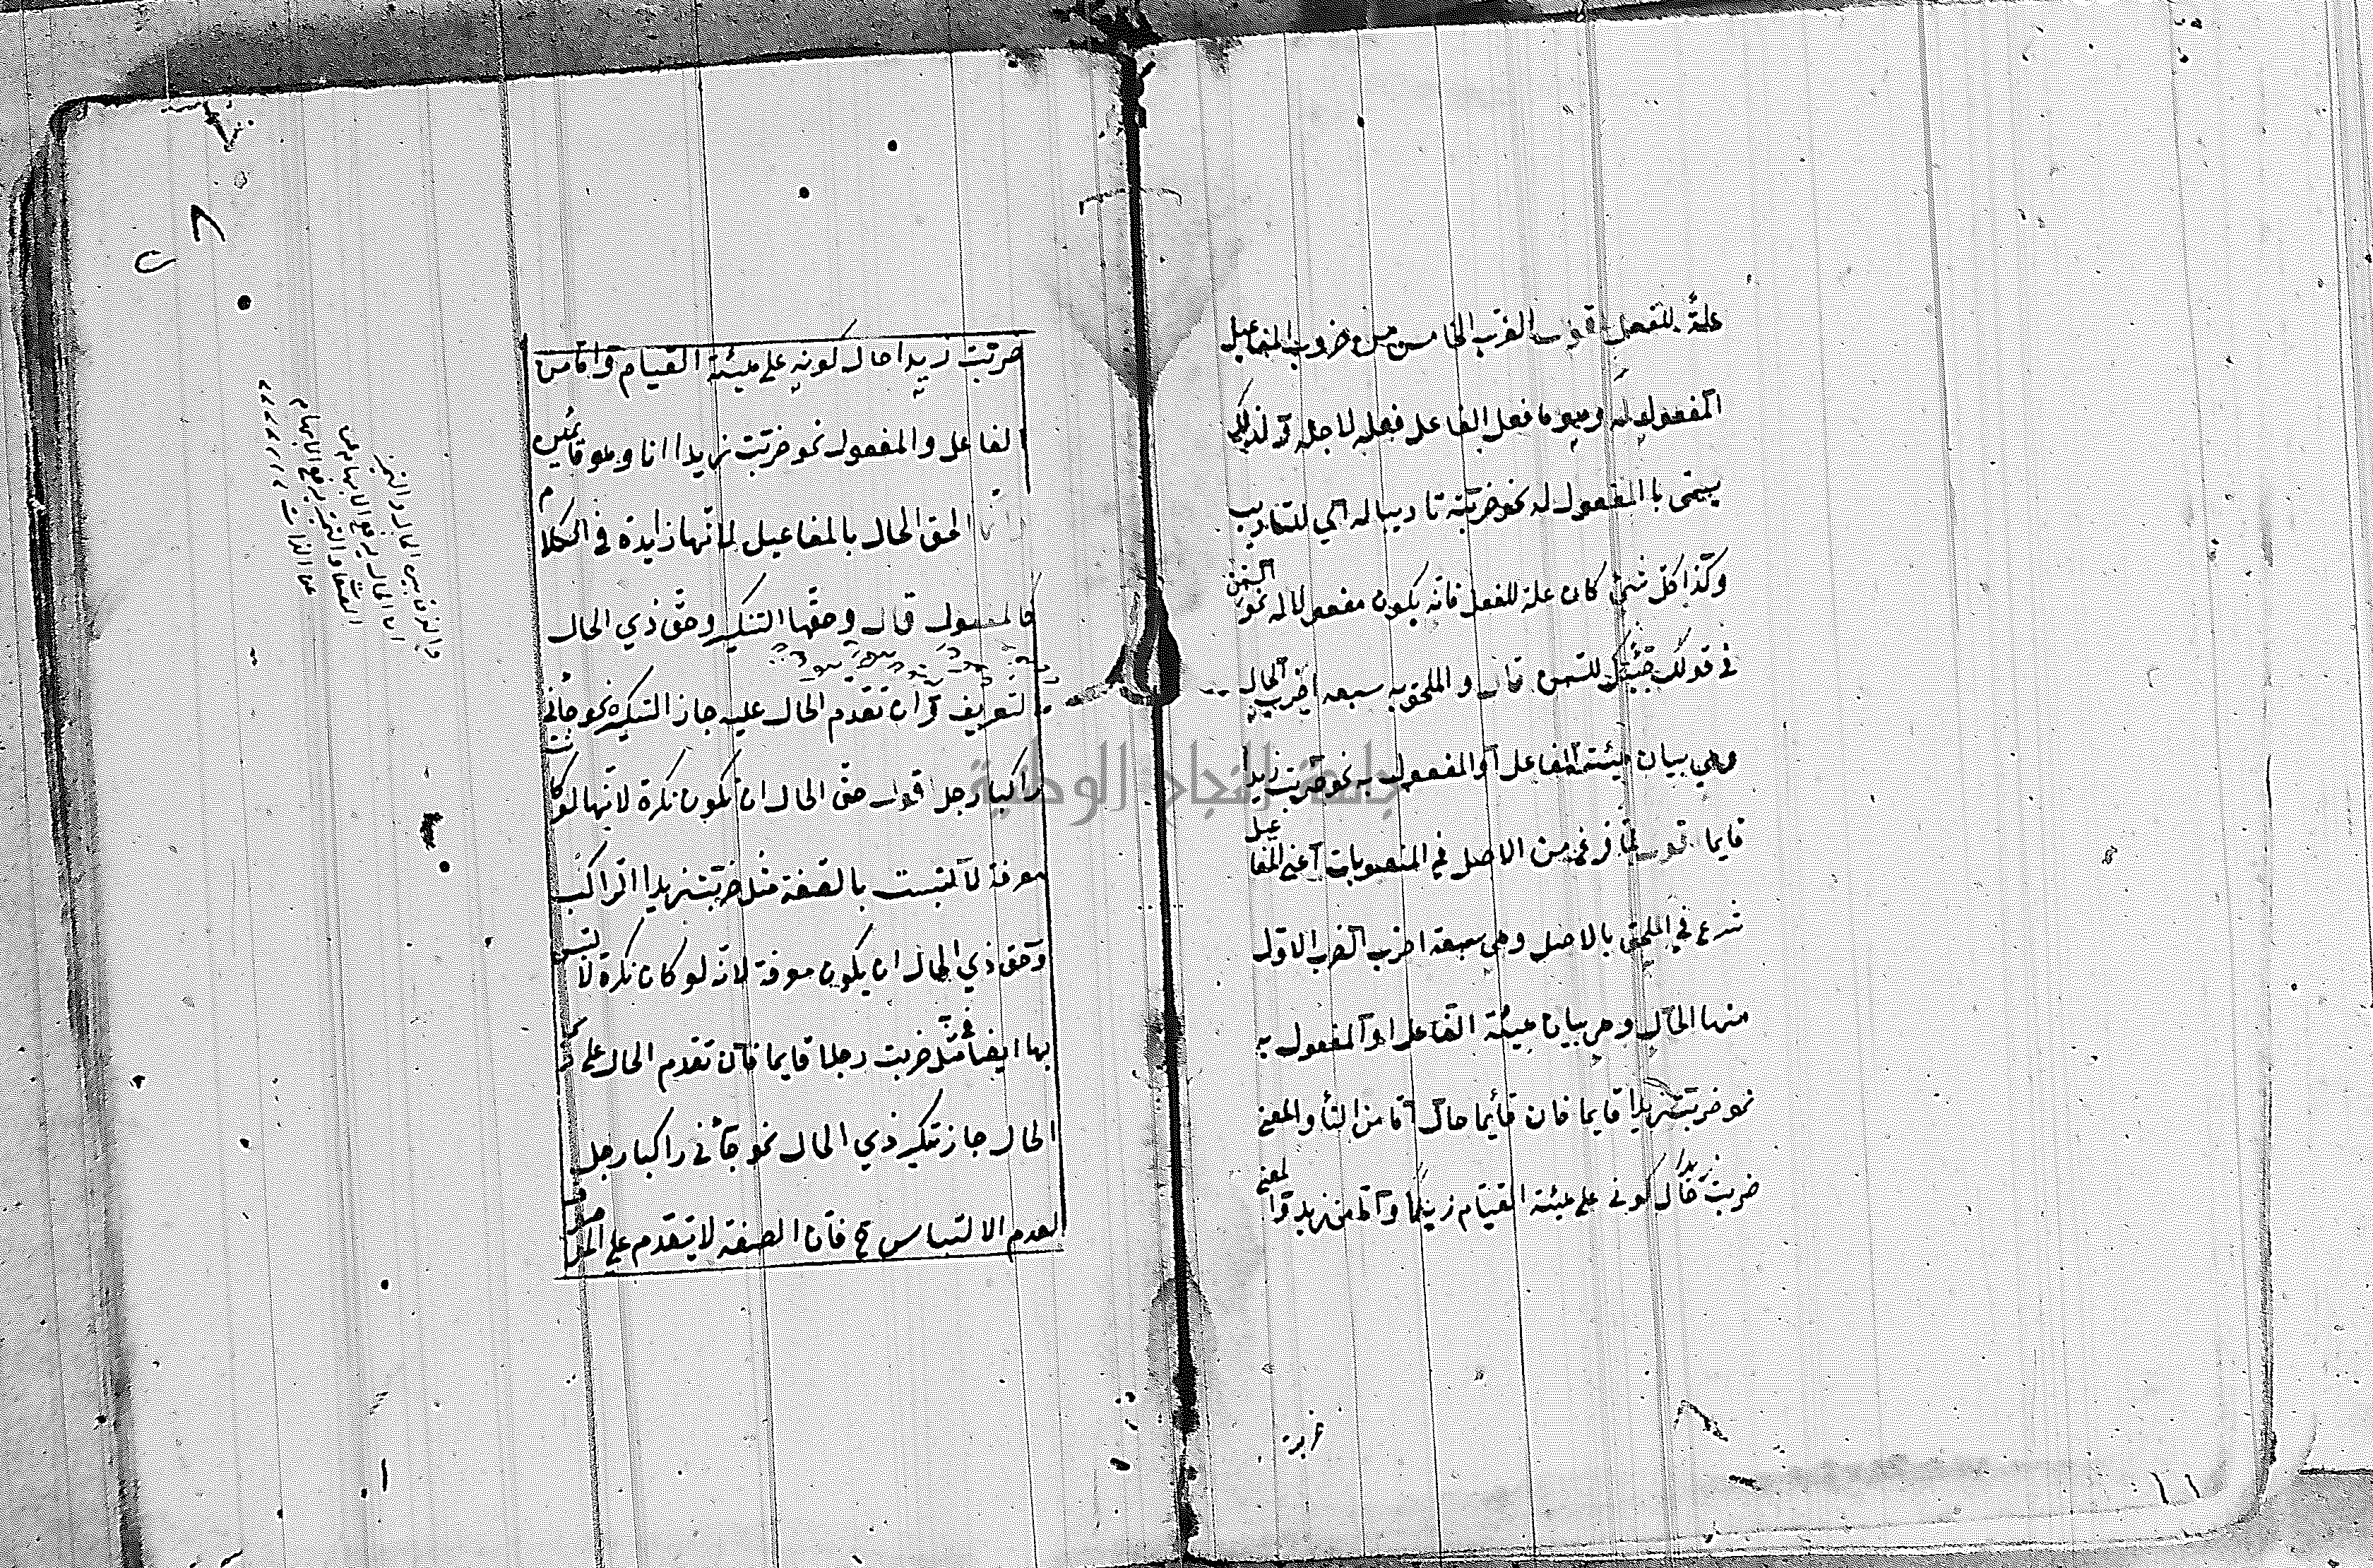 علة للفعل قول الضرب الخامس من ضروب المفاعيل
المفعول له وهو ما فعل الفاعل فعله لاجله ولذلك
يسمى بالمفعول له نحو ضربته تاديبا له اي للتاديب
وكذا كل شئ كان علة للفعل فانه يكون مفعولا له نحو السمن
في قولك جئتك للسمن قال والملحق به سبعة اضرب الحال
وهي بيان هيئة الفاعل او المفعول به نحو ضربت زيدا
قايما قول لما فرغ من الاصل في المنصوبات اعني المفاعيل
شرع في الملحق بالاصل وهي سبعة اضرب الضرب الاول
منها الحال وهي بيان هيئة الفاعل او المفعول به
نحو ضربت زيدا قايما فان قائما حال اما من التا والمعنى
ضربت زيدا حال كوني على هيئة القيام واما من زيد والمعنى
ضربت
ضربت زيدا حال كونه على هيئة القيام واما من
الفاعل والمفعول نحو ضربت زيدا انا وهو قائمين
الحق الحال بالمفاعيل لانها زايدة في الكلام
كالمفعول قال وحقها التنكير وحق ذي الحال
التعريف فان تقدم الحال عليه جاز التنكير نحو جاني
راكبا رجل قول حق الحال ان تكون نكرة لانها لو كانت
معرفة لالتبست بالصفة مثل ضربت زيدا الراكب
وحق ذي الحال ان يكون معرفة لانه لو كان نكرة لالتبس
بها ايضا في مثل ضربت رجلا قايما فان تقدم الحال على ذي
الحال جاز تنكير ذي الحال نحو جائني راكبا رجل
لعدم الالتباس ح فان الصفة لا يتقدم على الموصوف
والفرق بين الحال والتميز
ان الحال يرفع الابهام عن
الصفات والتميز يرفع الابهام
عن الذات
جامعة النجاح الوطنية